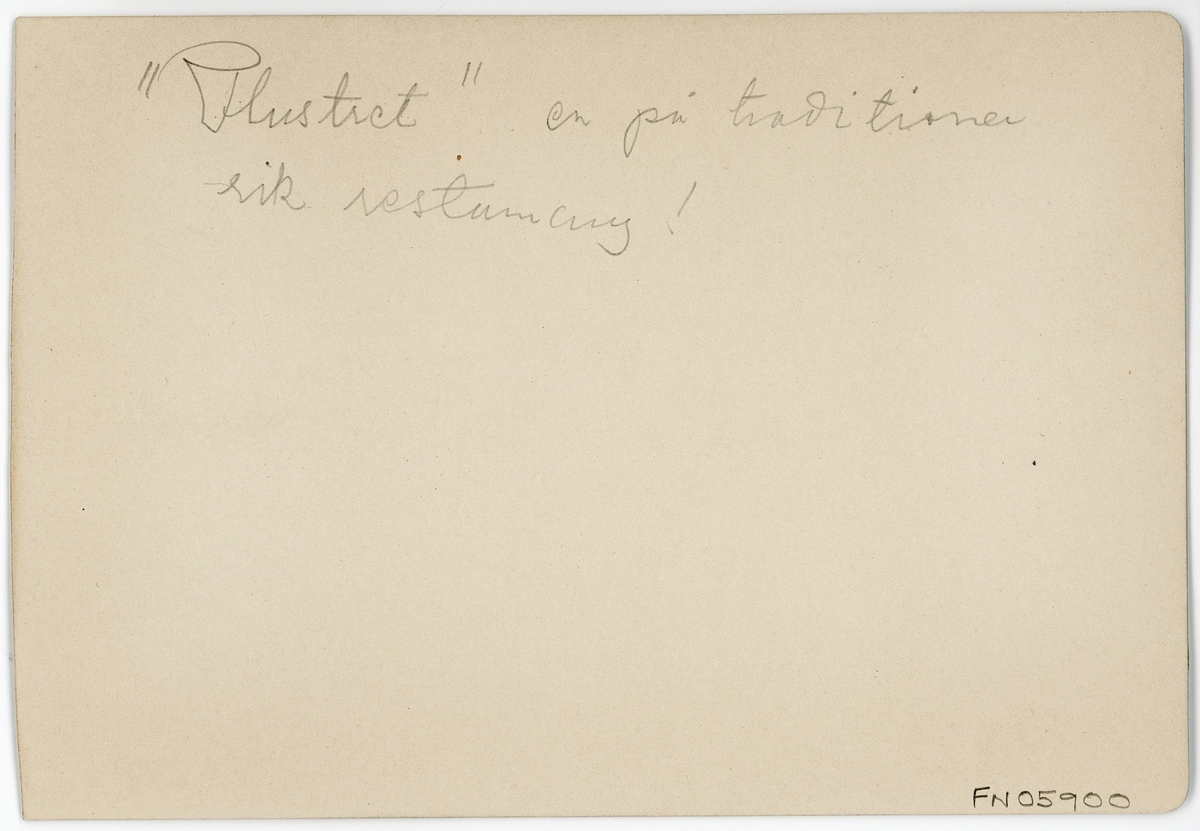 "Flustret" en på traditioner
rik restaurang!
FN05900